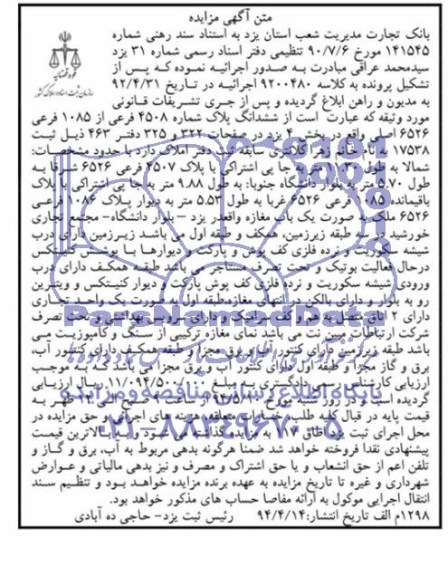 متن آگهی مزایده
بانک تجارت مدیریت شعب استان یزد به استناد سند رهنی شماره
۱۴۱۵۴۵ مورخ ۹۰/۷/۶ تنظیمی دفتر اسناد رسمی شماره ۳۱ یزد
سیدمحمد عراقی مبادرت به صدور اجرائیه نموده که پس از
تشکیل پرونده به کلاسه ۹۲۰۰۴۸۰ اجرائیه در تاریخ ۹۲/۴/۳۱
به مدیون و راهن ابلاغ گردیده و پس از جری تشریفات قانونی
مورد وثیقه که عبارت است از ششدانگ پلاک شماره ۴۵۰۸ فرعی از ۱۰۸۵ فرعی
۶۵۲۶ اصلی واقع در بخش ۴ یزد در صفحات ۳۲۲ و ۳۲۵ دفتر ۴۶۳ ذیل ثبت
۱۷۵۳۸ به نام خانم زهرا کلانتری سابقه ثبت دفتر املاک دارد با حدود مشخصات:
شمالا به طول متر به جا پی اشتراکی با پلاک ۴۵۰۷ فرعی ۶۵۲۶ شرقا به
طول ۵.۷۰ متر به بلوار دانشگاه جنوبا: به طول ۹.۸۸ متر به جا پی اشتراکی با پلاک
باقیمانده ۱۰۸۵ فرعی ۶۵۲۶ غربا به طول ۵.۵۳ متر به دیوار پلاک ۱۰۸۶ فرعی
۶۵۲۶ ملک به صورت یک باب مغازه واقع در یزد - بلوار دانشگاه- مجتمع تجاری
خورشید در سه طبقه زیرزمین، همکف و طبقه اول می باشد زیرزمین دارای درب
شیشه سکوریت و نرده فلزی کف پوش و پارکت و دیوارها با پوشش کنیتکس
درحال فعالیت بوتیک و تحت تصرف مستاجر می باشد طبقه همکف دارای درب
ورودی شیشه سکوریت و نرده فلزی کف پوش پارکت و دیوار کنیتکس و ویترین
رو به بلوار و دارای بالکن در انتهای مغازه.طبقه اول به صورت یک واحد تجاری
دارای ۲ اتاق متصل به هم و کف سرامیک دارای سرویس بهداشتی و تحت تصرف
شرکت ارتباطات مبین نت می باشد نمای مغازه ترکیبی از سنگ و کامپوزیت می
باشد طبقه زیرزمین دارای کنتور آب و برق مجزا و طبقه همکف دارای کنتور آب،
برق و گاز مجزا و طبقه اول دارای کنتور آب و برق مجزا می باشد که به موجب
ارزیابی کارشناس رسمی دادگستری به مبلغ ۱۱/۰۹۴/۵۰۰/۰۰۰ ریال ارزیابی
گردیده است
قیمت پایه در قبال کلیه طلب، خسارات متعلقه، هزینه های اجرائی و حق مزایده در
محل اجرای ثبت یزد اطاق ۱۷ به مزایده گذاشته می شود و به بالاترین قیمت
پیشنهادی نقدا فروخته خواهد شد ضمنا هرگونه بدهی مربوط به آب، برق و گاز و
تلفن اعم از حق انشعاب و یا حق اشتراک و مصرف و نیز بدهی مالیاتی و عوارض
شهرداری و غیره تا تاریخ مزایده به عهده برنده مزایده خواهد بود و تنظیم سند
انتقال اجرایی موکول به ارائه مفاصا حساب های مذکور خواهد بود.
۱۲۹۸م الف تاریخ انتشار:۹۴/۴/۱۴ رئیس ثبت یزد- حاجی ده آبادی
قوه قضائیه
سازمان ثبت اسناد و املاک کشور
ParsNamadData
پایگاه اطلاع رسانی مناقصه و مزایده
۰۲۱-۸۸۳۴۹۶۷۰-۵